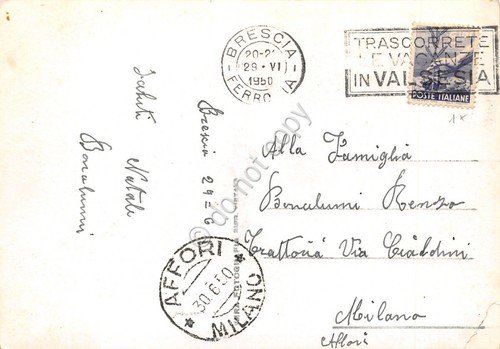 BRESCIA
20-2
29·VI
1950
FERROVIA
TRASCORRETE
LE VACANZE
IN VALSESIA
POSTE ITALIANE
1x
Saluti Natale
Bonalumi
Brescia 29=6
Alla Famiglia
Bonalumi Renzo
Trattoria Via Cialdini
Milano
Affori
AFFORI
30.6.50
MILANO
do not copy